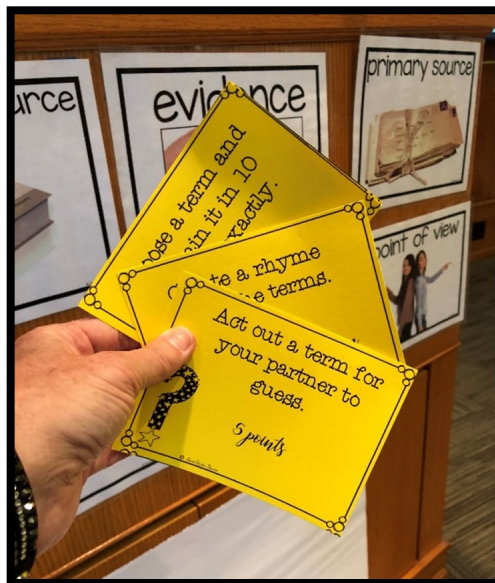 urce
evidence
primary source
point of view
ose a term and
in it in 10
xactly.
te a rhyme
e terms.
Act out a term for
your partner to
guess.
5 points